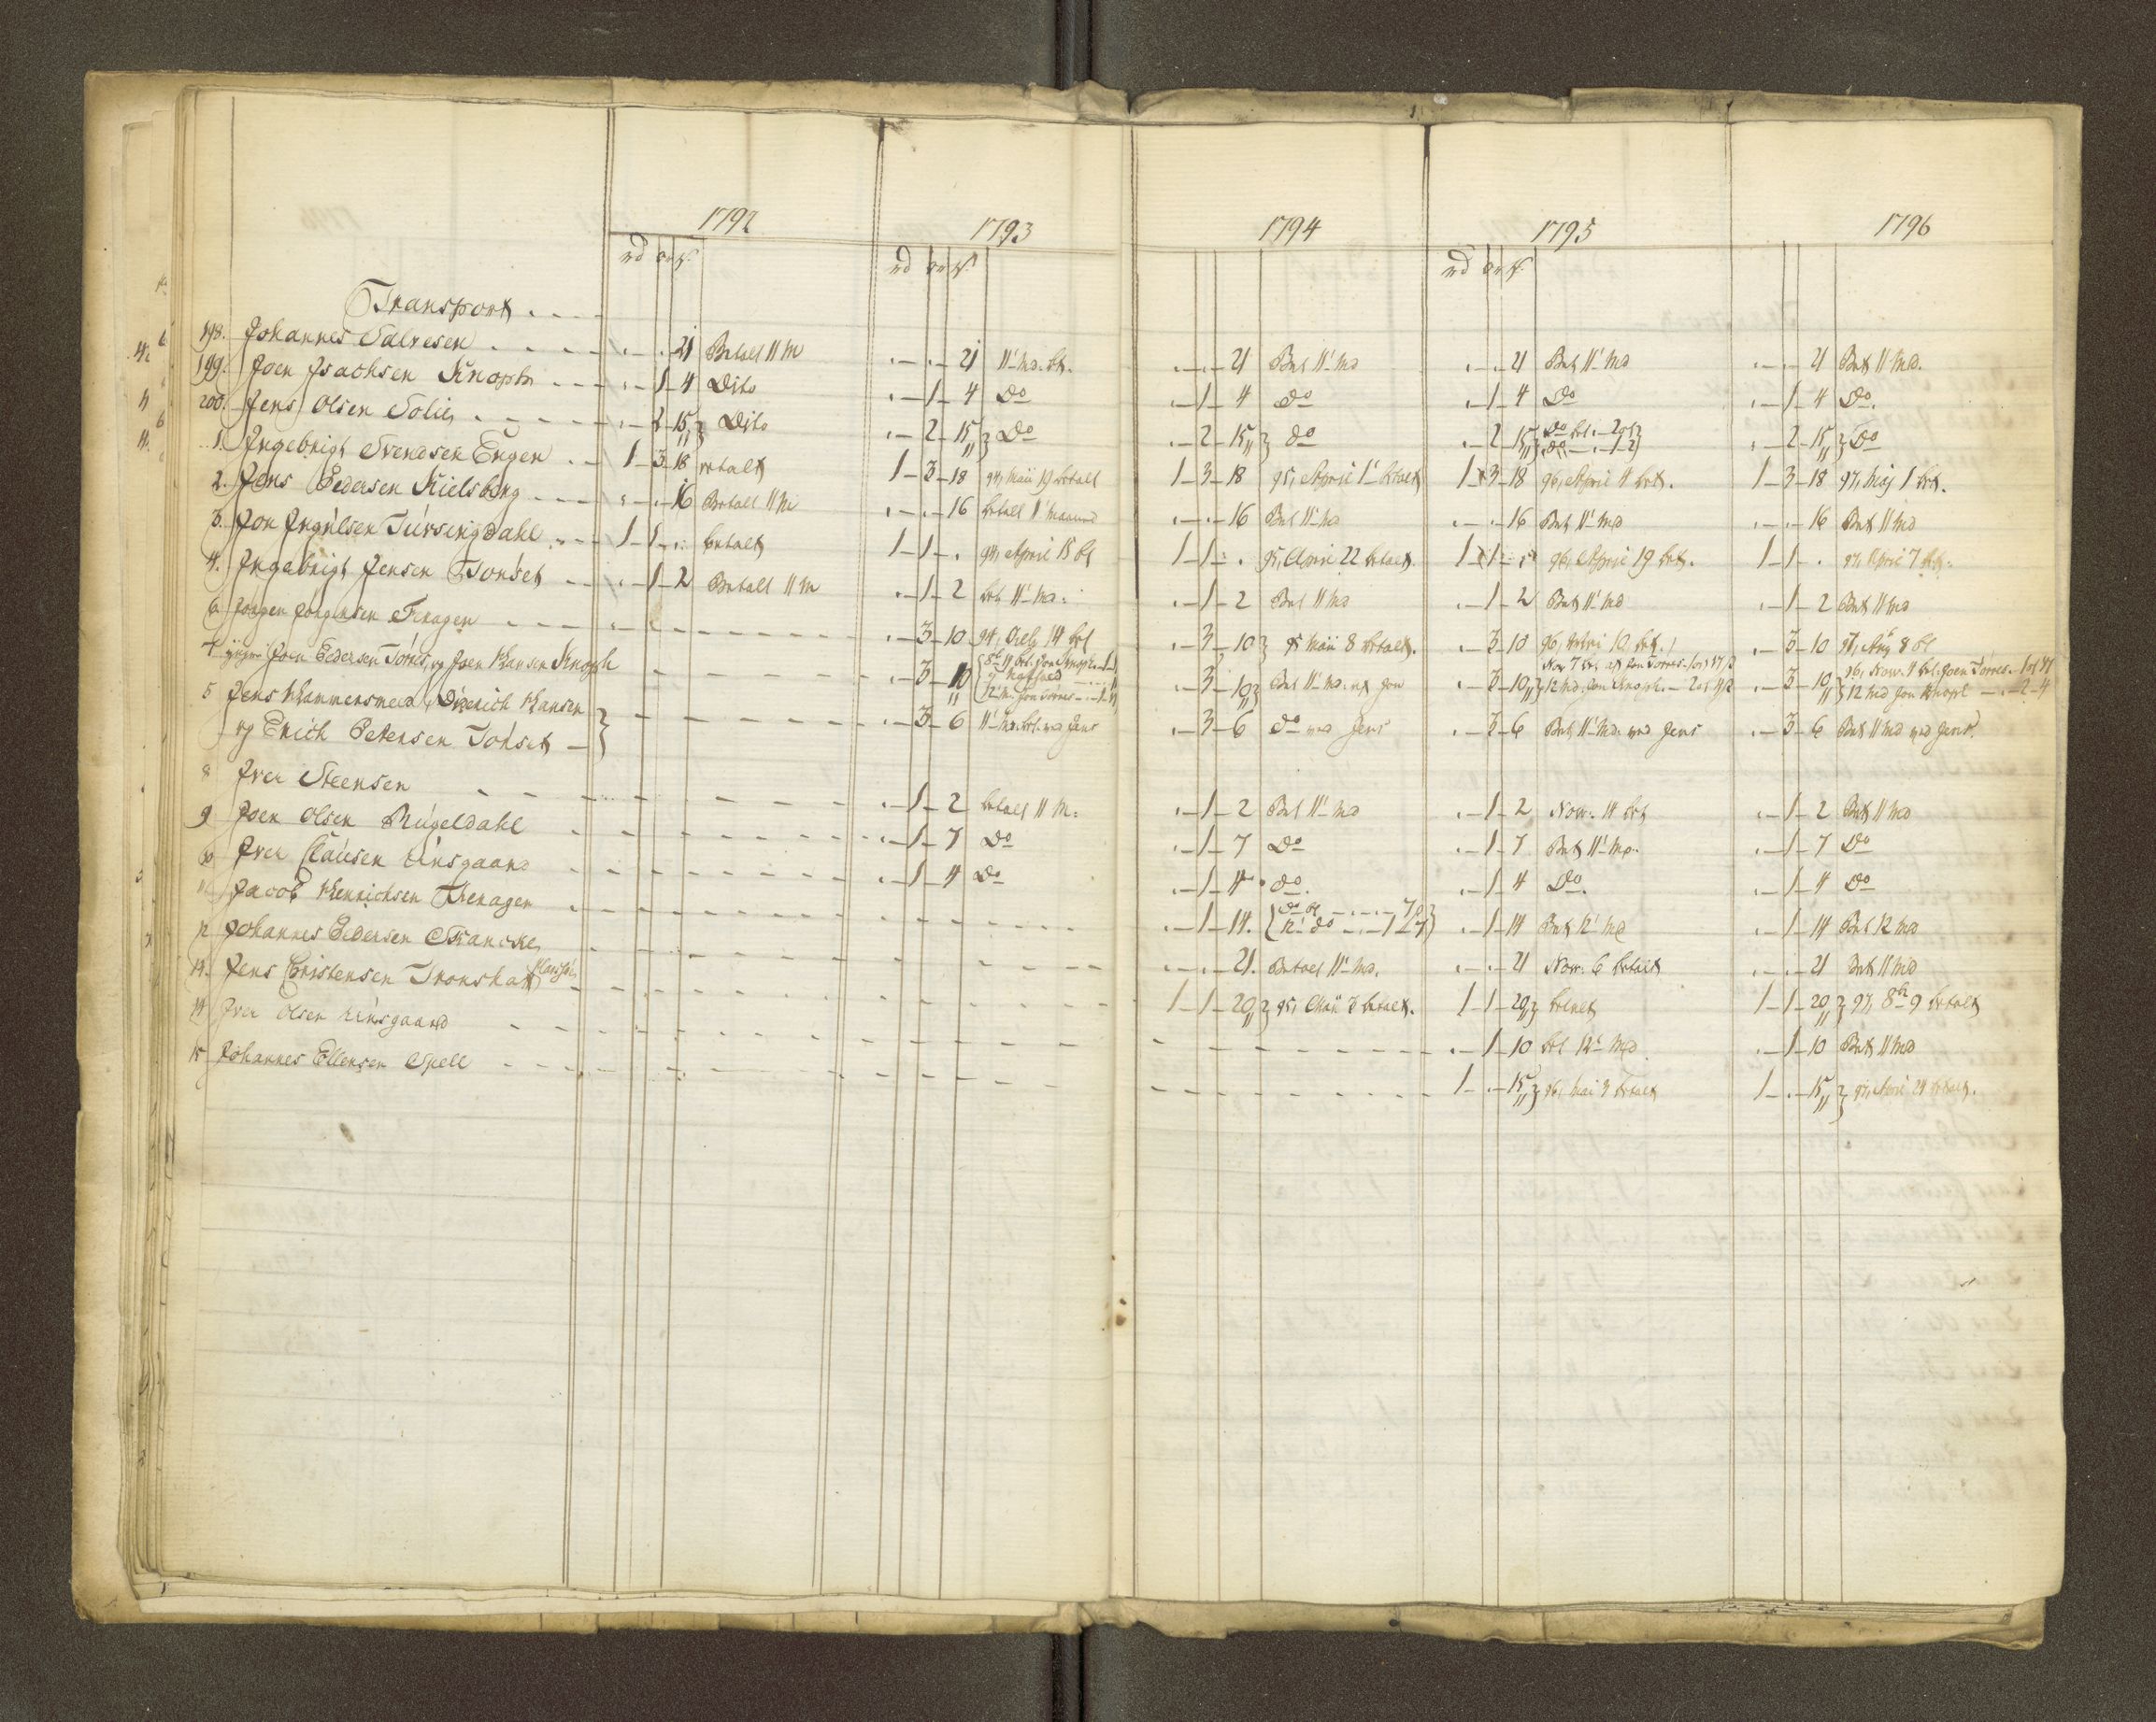 1792 1793 1794 1795 1796
rd ort s. rd ort s. rd ort s.
Transport . . . .
198. Johannes Salvesen . . . . 21 Betalt 11 M . – . – 21 11' Md. bt. . – . – 21 Bet 11' Md . – . – 21 Bet 11' Md . – . – 21 Bet 11 Md.
199. Joen Isachsen Knoph – – . – 1 – 4 Dito . – 1 – 4 Do . – 1 – 4 do . – 1 – 4 Do . – 1 – 4 Do.
200. Jens Olsen Solie . – – . – 2 – 15 } Dito . – 2 – 15 } Do . – 2 – 15 } do . – 2 – 15 } Do . – 2 – 15 } Do
1. Ingebrigt Svendsen Engen . – 1 – 3 – 18 betalt 1 – 3 – 18 94, Maii 19 betalt 1 – 3 – 18 95, April 1' betalt 1 – 3 – 18 96, April 4 bet. 1 – 3 – 18 97, Maj 1 bet.
2. Jens Pedersen Kielsberg – – . – . – 16 Betalt 11 M . – . – 16 betalt 11' Maaned . – . – 16 Bet 11' Md . – . – 16 Bet 11' Md . – . – 16 Bet 11 Md
3. Jon Ingulsen Tufsingdahl . – – 1 – 1 – . betalt 1 – 1 – . 94, April 15 bt 1 – 1 – . 95, April 22 betalt. 1 – 1 – . 96, April 19 bet. 1 – 1 – . 97, April 7 bet.
4. Ingebrigt Jensen Tønset – – . – 1 – 2 Betalt 11 M . – 1 – 2 bet 11' Md: . – 1 – 2 Bet 11 Md . – 1 – 2 Bet 11' Md . – 1 – 2 Bet 11 Md
6 Jørgen Jørgensen Feragen – – – . – 3 – 10 94, July 14 bet . – 3 – 10 } 95 Maii 8 betalt. . – 3 – 10 96, 10 bet. . – 3 – 10 97, Aug 8 bt
7 Joen Pedersen Torres, og Joen Hansen Knoph . – 3 – 10 . – 3 – 10 } Bet 11' Md. af Jon . – 3 – 10 } Nov 7 bet af Jon Torres 12 Md. Jon Knoph . – 3 – 10 } 96, Nov. 4 bet. Joen Torres 12 Md Jon Knoph – . – 2 – 4
5 Jens Hammersmed, Diderich Hansen
og Erich Petersen Tønset – } . – 3 – 6 11' Md. bt. ved Jens . – 3 – 6 do ved Jens . – 3 – 6 Bet 11' Md. ved Jens . – 3 – 6 Bet 11 Md ved Jens
8 Iver Steensen – – – . – 1 – 2 betalt 11 M: . – 1 – 2 Bet 11' Md . – 1 – 2 Nov. 4 bet . – 1 – 2 Bet 11 Md
9 Joen Olsen Rugeldahl – – . – 1 – 7 Do . – 1 – 7 Do . – 1 – 7 Bet 11' Md. . – 1 – 7 Do
10 Iver Clausen Aasgaard – – . – 1 – 4 Do . – 1 – 4 do. . – 1 – 4 Do. . – 1 – 4 Do
11 Jacob Henrichsen Feragen – – . – 1 – 14. { do bt – . – . – 7 s } { 12' do – . – 1 – 7 } . – 1 – 14 Bet 12' Md . – 1 – 14 Bet 12 Md
12 Johannes Pedersen Krancke – – . – . – 21. Betalt 11' Md. . – . – 21 Nov. 6 betalt . – . – 21 Bet 11 Md
13. Jens Cristensen Tronskatt – 1 – 1 – 20 } 95, Maii betalt. 1 – 1 – 20 } betalt 1 – 1 – 20 } 97, 8br 9 betalt
14 Iver Olsen Aasgaard – – . – 1 – 10 bet 12' Md . – 1 – 10 Bet 11 Md
15 Johannes Ellensen Spell – – 1 – . – 15 } 96, Mai 3 betalt 1 – . – 15 } 97, April 24 betalt.